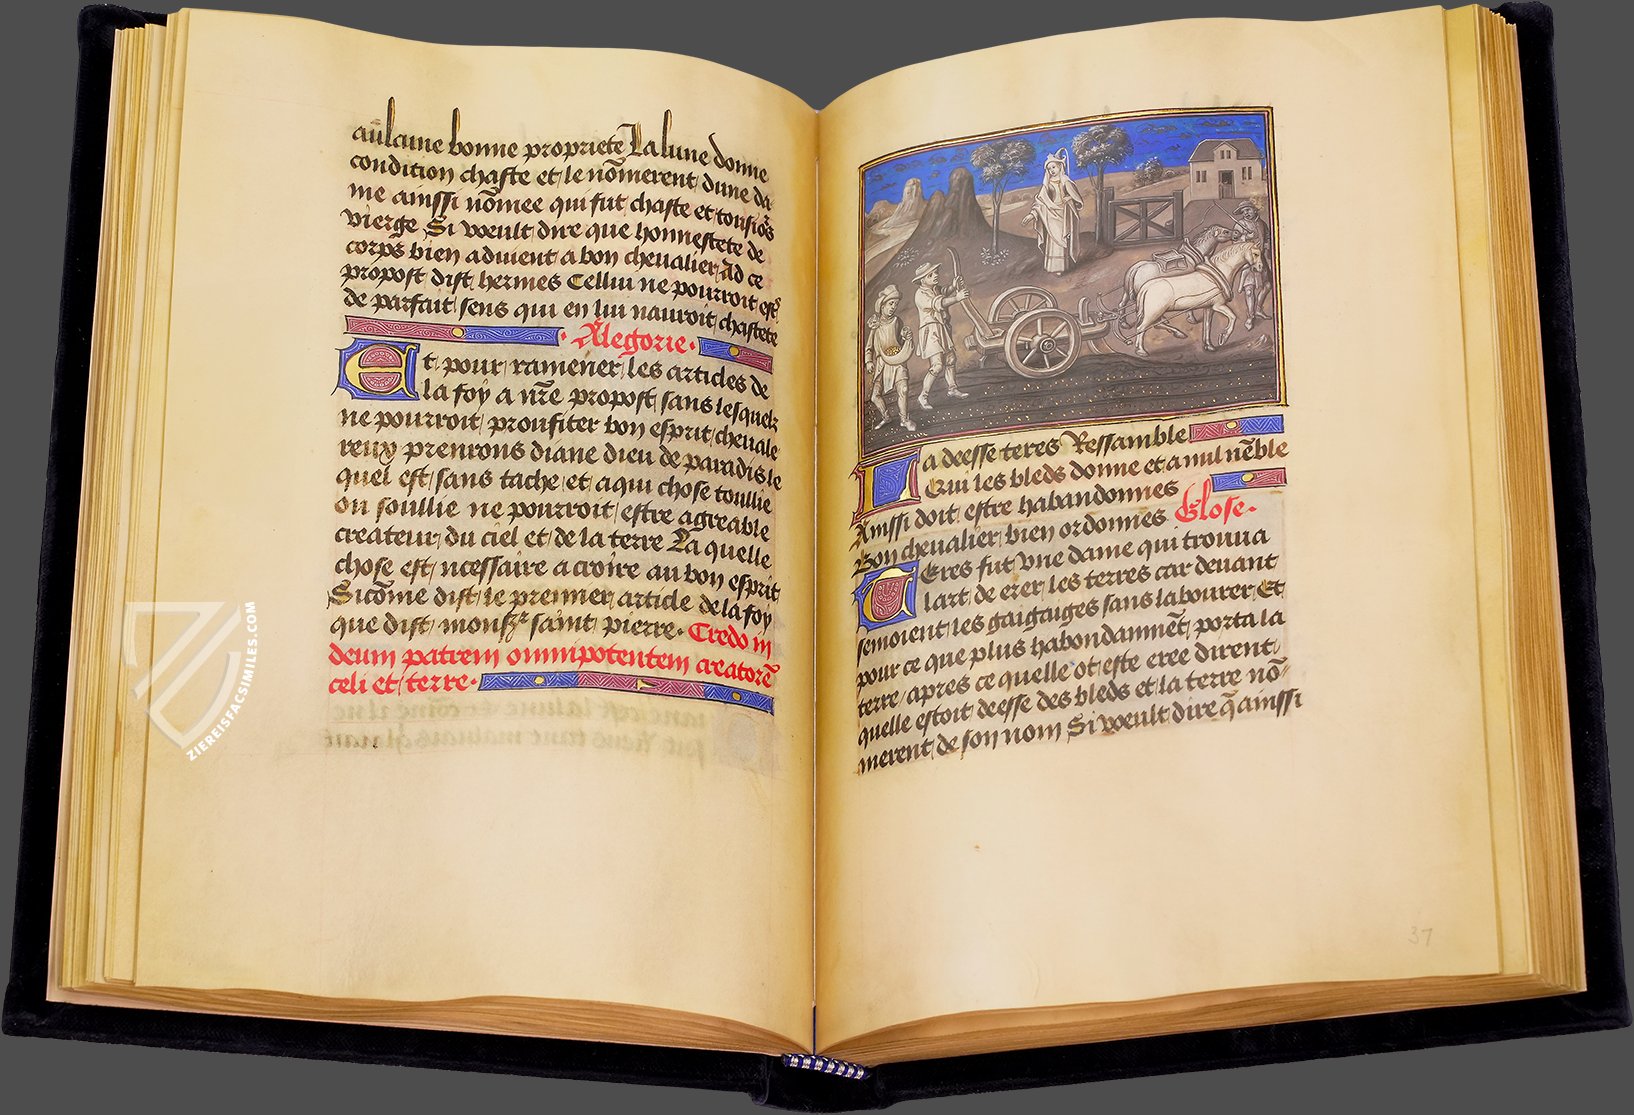 aulcune bonne propriete La lune donne
condition chaste et le nōmerent dune da
me ainssi nōmee qui fut chaste et tousiōs
vierge Si voeult dire que honnestete de
corps bien aduient a bon cheualier Ad ce
propost dist hermes Cellui ne pourroit estr̄
de parfait sens qui en lui nauroit chastete
Alegorie·
Et pour ramener les articles de
la foy a nr̄e propost sans lesquelz
ne pourroit prouffiter bon esprit cheuale
reux prenrons diane dieu de paradis le
quel est sans tache et a qui chose toullie
ou soullie ne pourroit estre agreable
createur du ciel et de la terre La quelle
chose est ncessaire a croire au bon esprit
Sicōme dist le premier article de la foy
que dist monsr̄ saint pierre· Credo in
deum patrem omnipotentem creatorē
celi et terre·
La deesse ceres Ressamble
Qui les bleds donne et a nul nēble
Ainssi doit estre habandonnes
Bon cheualier bien ordonnes Glose·
Ceres fut vne dame qui trouua
lart de erer les terres car deuant
semoient les gaigages sans labourer Et
pour ce que plus habondammēt porta la
terre apres ce quelle ot este eree dirent
quelle estoit deesse des bleds et la terre nō-
merent de son nom Si voeult dire q̄ ainssi
37
ZIEREISFACSIMILES.COM